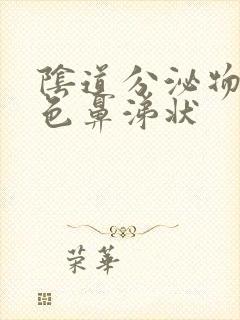 陰道分泌物
色鼻涕状
荣華